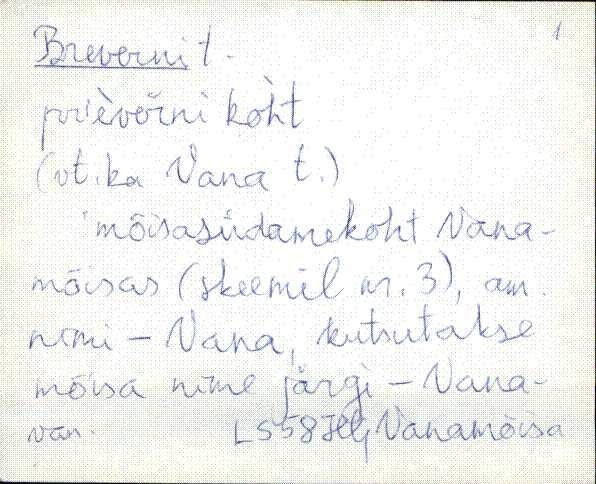 1
Breverni t.
prièvèrni kòht
(vt. ka Vana t.)
mõisasüdamekoht Vana-
mõisas (skeemil nr. 3), am.
nimi – Vana, kutsutakse
mõisa nime järgi – Vana-
van LS58 Hlj Vanamõisa